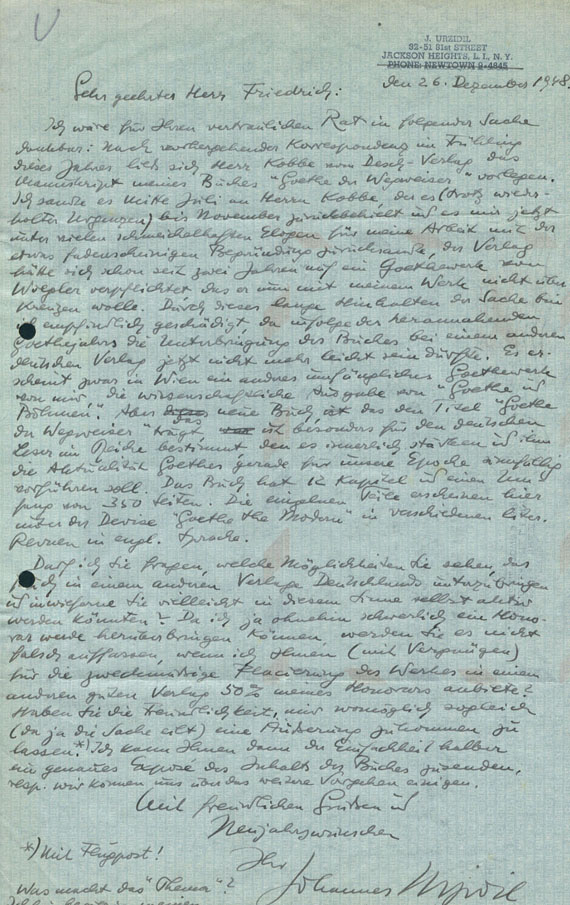 J. URZIDIL
82-51 81st STREET
JACKSON HEIGHTS, L. I., N. Y.
PHONE: NEWTOWN 9-4845
den 26. Dezember 1948.
Sehr geehrter Herr Friedrich:
Ich wäre für Ihren vertraulichen Rat in folgender Sache
dankbar: Nach vorhergehender Korrespondenz im Frühling
dieses Jahres liess sich Herr Kobbe vom Desch-Verlag das
Manuskript meines Buches "Goethe der Wegweiser" vorlegen.
Ich sandte es Mitte Juli an Herrn Kobbe, der es (trotz wieder-
holter Urgenzen) bis November zurückbehielt und es mir jetzt
unter vielen schmeichelhaften Elogen für meine Arbeit mit der
etwas fadenscheinigen Begründung zurücksandte, der Verlag
hätte sich schon seit zwei Jahren auf ein Goethewerk von
verpflichtet das er nun mit meinem Werk nicht über-
kreuzen wolle. Durch dieses lange Hinhalten der Sache bin
ich empfindlich geschädigt, da infolge des herannahenden
Goethejahrs die Unterbringung des Buches bei einem anderen
deutschen Verlag jetzt nicht mehr leicht sein dürfte. Es er-
scheint zwar in Wien ein andres umfängliches Goethewerk
von mir, die wissenschaftliche Ausgabe von "Goethe in
Böhmen". Aber das neue Buch das den Titel "Goethe
der Wegweiser" trägt, ist besonders für den deutschen
Leser im Reiche bestimmt, den es innerlich stärken und ihm
die Aktualität Goethes gerade für unsere Epoche sinnfällig
vorführen soll. Das Buch hat 12 Kapitel und einen Um-
fang von 350 Seiten. Die einzelnen Teile erscheinen hier
unter der Devise "Goethe the Modern" in verschiedenen liter.
Revuen in engl. Sprache.
Darf ich Sie fragen, welche Möglichkeiten Sie sehen, das
Buch in einem andren Verlage Deutschlands unterzubringen
und inwieferne Sie vielleicht in diesem Sinne selbst aktiv
werden könnten? Da ich ja ohnehin schwerlich ein Hono-
rar werde herüberbringen können, werden Sie es nicht
falsch auffassen, wenn ich Ihnen (mit Vergnügen)
für die zweckmässige Placierung des Werkes in einem
anderen guten Verlag 50% meines Honorars anbiete?
Haben Sie die Freundlichkeit, mir womöglich sogleich
(da ja die Sache eilt) eine Äusserung zukommen zu
lassen.*) Ich kann Ihnen dann der Einfachheit halber
ein genaues Exposé des Inhalts des Buches zusenden,
resp. wir können uns über das weitere Vorgehen einigen.
Mit freundlichen Grüßen und
Neujahrswünschen
Ihr
Johannes Urzidil
*) Mit Flugpost!
Was macht das "Thema"?